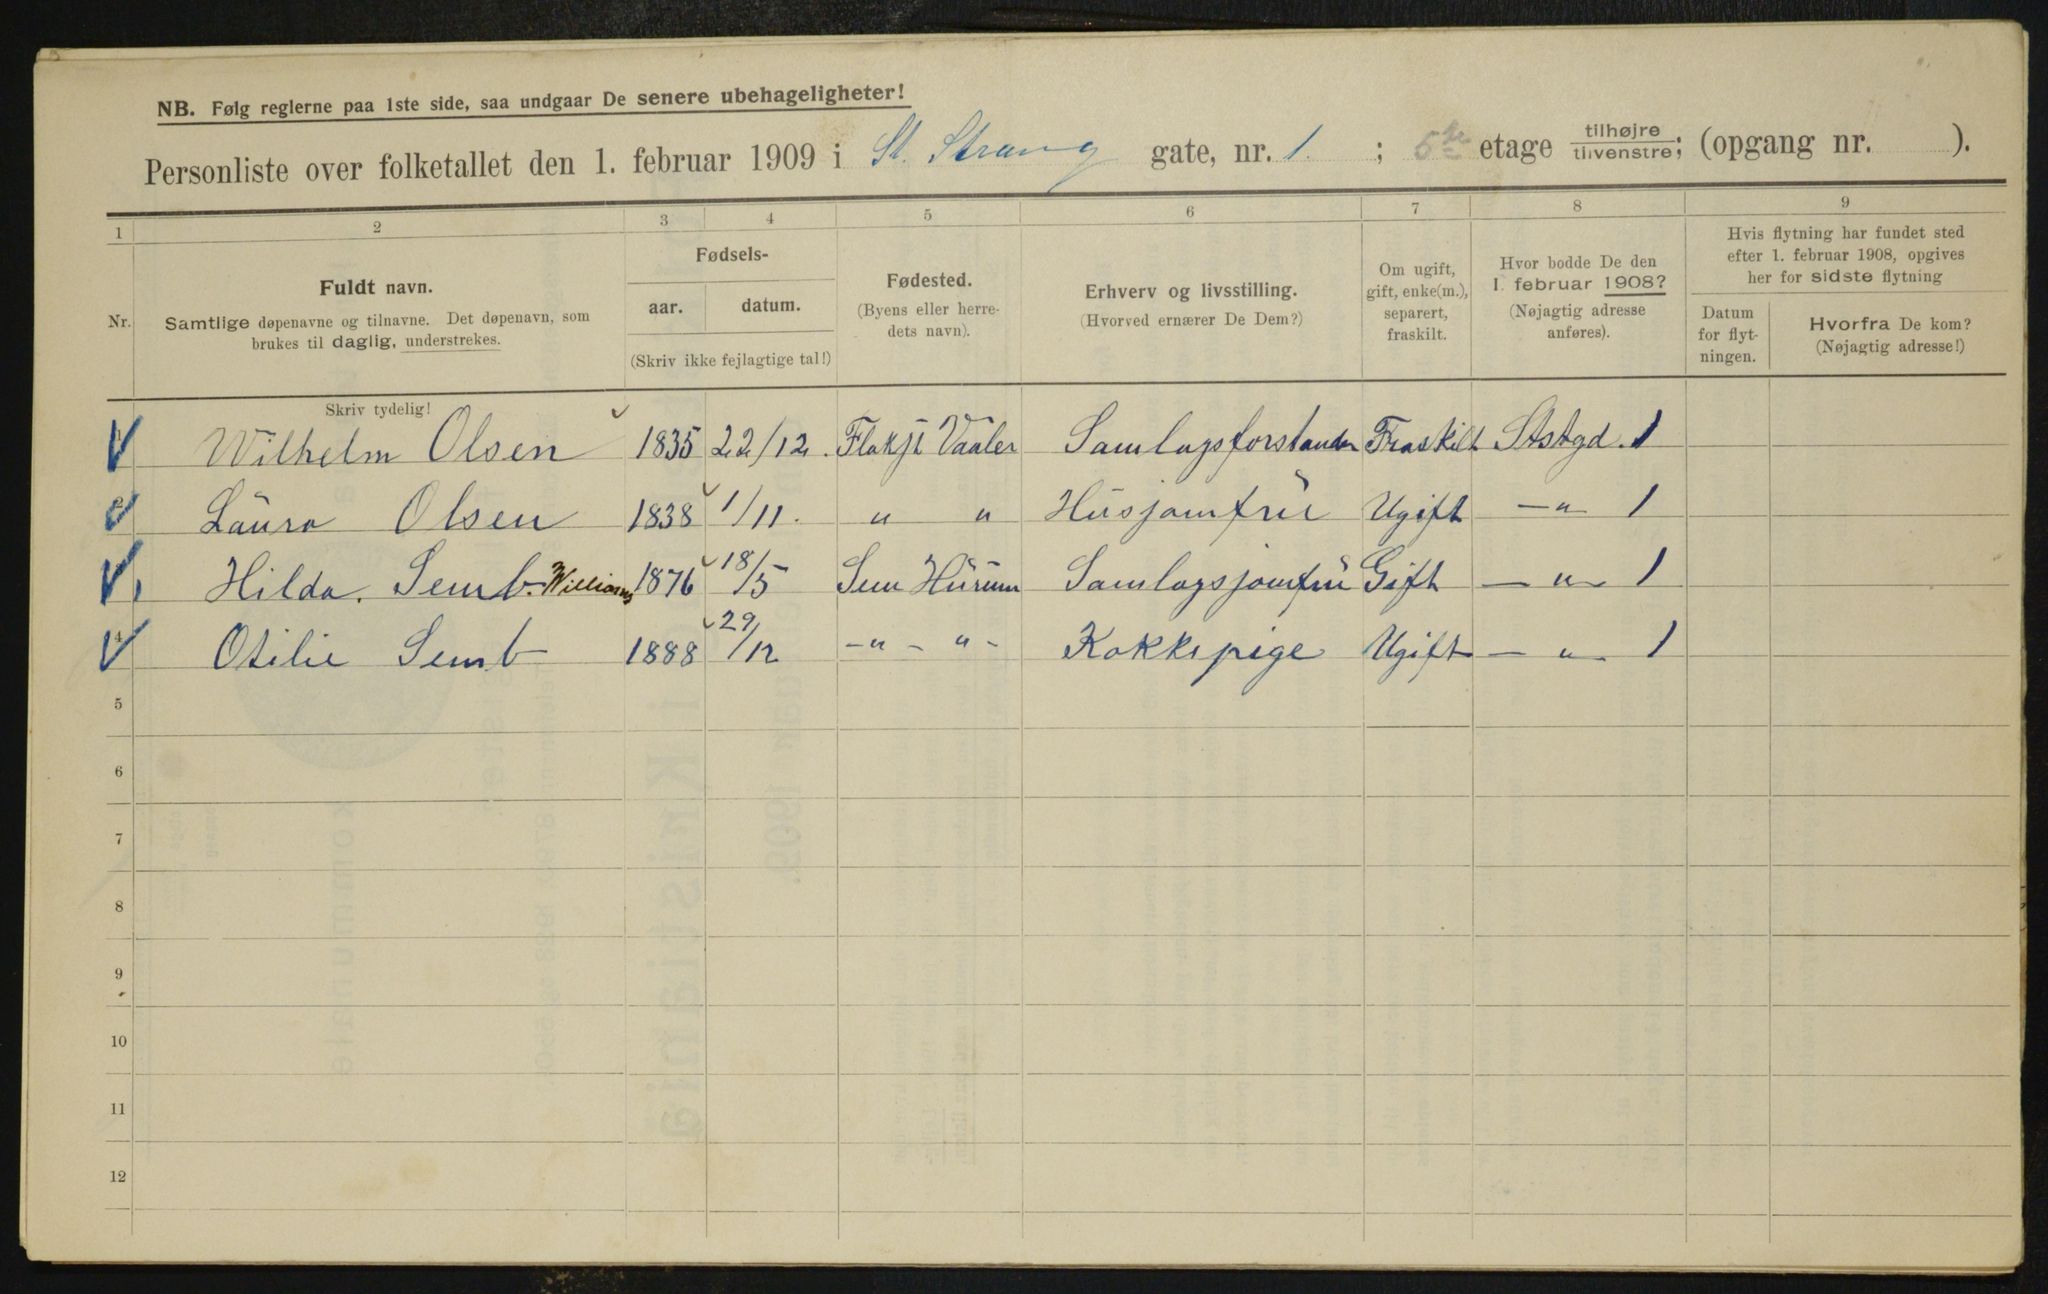 NB. Følg reglerne paa 1ste side, saa undgaar De senere ubehageligheter!
Personliste over folketallet den 1. februar 1909 i St. Strang gate, nr. 1. ; 5te etage tilhøjre tilvenstre; (opgang nr. ).
1 2 3 4 5 6 7 8 9
Nr.
Fuldt navn.
Samtlige døpenavne og tilnavne. Det døpenavn, som
brukes til daglig, understrekes.
Skriv tydelig!
Fødsels-
aar. datum.
(Skriv ikke fejlagtige tal!)
Fødested.
(Byens eller herre-
dets navn).
Erhverv og livsstilling.
(Hvorved ernærer De Dem?)
Om ugift,
gift, enke(m.),
separert,
fraskilt.
Hvor bodde De den
1. februar 1908?
(Nøjagtig adresse
anføres).
Hvis flytning har fundet sted
efter 1. februar 1908, opgives
her for sidste flytning
Datum
for flyt-
ningen.
Hvorfra De kom?
(Nøjagtig adresse!)
Wilhelm Olsen 1835 22/12. Flakjt Vaaler Samlagsforstander Fraskilt Ststgd. 1
2 Laura Olsen 1838 1/11. " " Husjomfru Ugift — " 1
Hilda. Semb. Williams 1876 18/5 Sem Hurum Samlagsjomfru Gift — " — 1
4 Otilie Semb 1888 29/12 - " - " - Kokkepige Ugift — " — 1
5
6
7
8
9
10
11
12